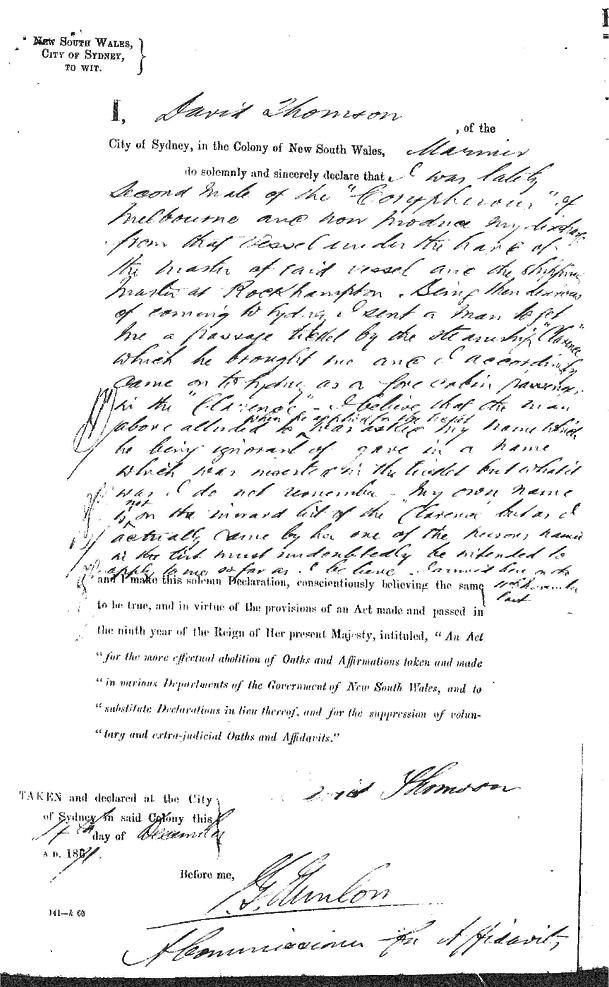 New South Wales,
City of Sydney,
to wit.
I, David Thomson
, of the
City of Sydney, in the Colony of New South Wales, Mariner
do solemnly and sincerely declare that I was lately
Second Mate of the "Corypheus" of
Melbourne and now produce my discharge
from that vessel under the hand of
the master of said vessel and the shipping
master at Rockhampton. Being then desirous
of coming to Sydney I sent a man to get
me a passage ticket by the steamship "Clarence"
which he brought me and I accordingly
came on to Sydney as a fore cabin passenger
in the "Clarence" - I believe that the man
when he applied for the ticket
above alluded to was asked my name which
he being ignorant of gave in a name
which was inserted in the ticket but what it
was I do not remember - My own name
not
is on the inward list of the Clarence but as I
actually came by her one of the persons named
in the list must undoubtedly be intended to
apply to me so far as I believe I arrived here on the
November
last
and I make this solemn Declaration, conscientiously believing the same
to be true, and in virtue of the provisions of an Act made and passed in
the ninth year of the Reign of Her present Majesty, intituled, "An Act
"for the more effectual abolition of Oaths and Affirmations taken and made
"in various Departments of the Government of New South Wales, and to
"substitute Declarations in lieu thereof, and for the suppression of volun-
"tary and extra-judicial Oaths and Affidavits."
David Thomson
TAKEN and declared at the City
of Sydney in said Colony this
day of December
A.D. 1871.
Before me,
141—k 60
A Commissioner for Affidavits